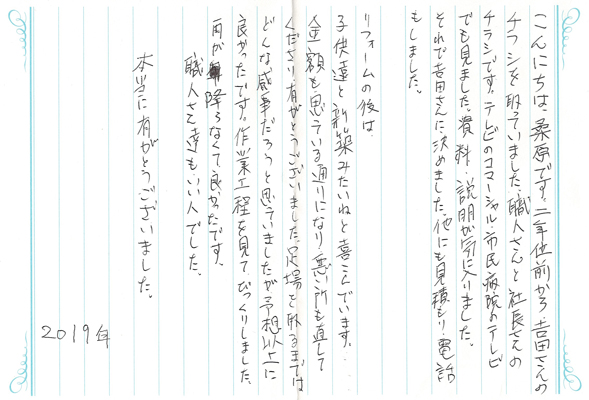 こんにちは、桑原です。二年位前から吉田さんの
チラシを取っていました。職人さんと社長さんの
チラシです。テレビのコマーシャル・市民病院のテレビ
でも見ました。資料、説明が気に入りました。
それで吉田さんに決めました。他にも見積もり、電話
もしました。
リフォームの後は、
子供達と新築みたいねと喜んでいます。
金額も思っている通りになり、悪い所も直して
くださり有がとうございました。足場を取るまでは
どんな感事だろうと思っていましたが予想以上に
良かったです。作業工程を見てびっくりしました。
雨が降らなくて良かったです。
職人さん達もいい人でした。
本当に有がとうございました。
2019年